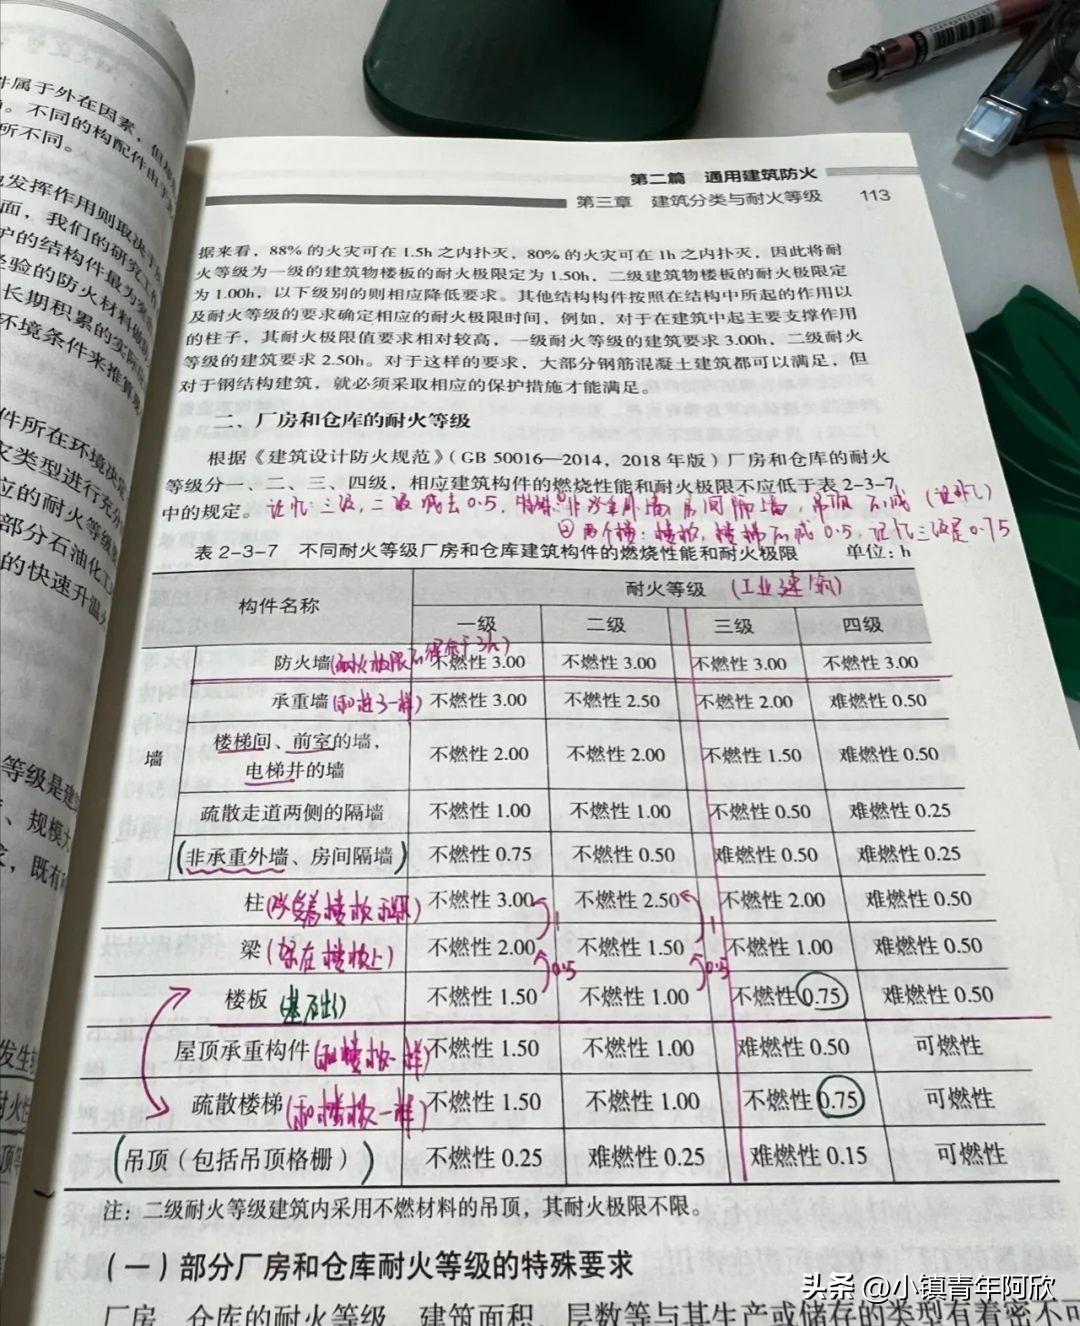 件属于外在因素，但
。不同的构配件由于
所不同。
发挥作用则取决
面，我们的研究工作
护的结构件最为突出
经验的防火材料
长期积累的实际
环境条件来推算
件所在环境决定
类型进行充分
应的耐火等级
部分石油化工
的快速升温
等级是
、规模
，既有
第二篇 通用建筑防火
第三章 建筑分类与耐火等级 113
据来看，88% 的火灾可在 1.5h 之内扑灭，80% 的火灾可在 1h 之内扑灭，因此将耐
火等级为一级的建筑物楼板的耐火极限定为 1.50h，二级建筑物楼板的耐火极限定
为 1.00h，以下级别的则相应降低要求。其他结构构件按照在结构中所起的作用以
及耐火等级的要求确定相应的耐火极限时间，例如，对于在建筑中起主要支撑作用
的柱子，其耐火极限值要求相对较高，一级耐火等级的建筑要求 3.00h，二级耐火
等级的建筑要求 2.50h。对于这样的要求，大部分钢筋混凝土建筑都可以满足，但
对于钢结构建筑，就必须采取相应的保护措施才能满足。
二、厂房和仓库的耐火等级
根据《建筑设计防火规范》（GB 50016—2014，2018 年版）厂房和仓库的耐火
等级分一、二、三、四级，相应建筑构件的燃烧性能和耐火极限不应低于表 2-3-7
中的规定。记忆：三级，二级减去0.5，特殊：非承重外墙，房间隔墙，吊顶 不减
两个楼：楼板，楼梯不减0.5，记忆三级是0.75
表 2-3-7 不同耐火等级厂房和仓库建筑构件的燃烧性能和耐火极限 单位：h
构件名称 耐火等级 (工业建筑)
一级 二级 三级 四级
墙
防火墙(耐火极限不得低于3h) 不燃性 3.00 不燃性 3.00 不燃性 3.00 不燃性 3.00
承重墙(和柱子一样) 不燃性 3.00 不燃性 2.50 不燃性 2.00 难燃性 0.50
楼梯间、前室的墙，
电梯井的墙 不燃性 2.00 不燃性 2.00 不燃性 1.50 难燃性 0.50
疏散走道两侧的隔墙 不燃性 1.00 不燃性 1.00 不燃性 0.50 难燃性 0.25
(非承重外墙、房间隔墙) 不燃性 0.75 不燃性 0.50 难燃性 0.50 难燃性 0.25
柱 不燃性 3.00 1 不燃性 2.50 1 不燃性 2.00 难燃性 0.50
梁 不燃性 2.00 0.5 不燃性 1.50 0.5 不燃性 1.00 难燃性 0.50
楼板 (基础) 不燃性 1.50 不燃性 1.00 不燃性 0.75 难燃性 0.50
屋顶承重构件(和楼板一样) 不燃性 1.50 不燃性 1.00 难燃性 0.50 可燃性
疏散楼梯(和楼板一样) 不燃性 1.50 不燃性 1.00 不燃性 0.75 可燃性
(吊顶（包括吊顶格栅）) 不燃性 0.25 难燃性 0.25 难燃性 0.15 可燃性
注：二级耐火等级建筑内采用不燃材料的吊顶，其耐火极限不限。
（一）部分厂房和仓库耐火等级的特殊要求
厂房、仓库的耐火等级、建筑面积、层数等与其生产或储存的类型有着密不可
头条 @小镇青年阿欣